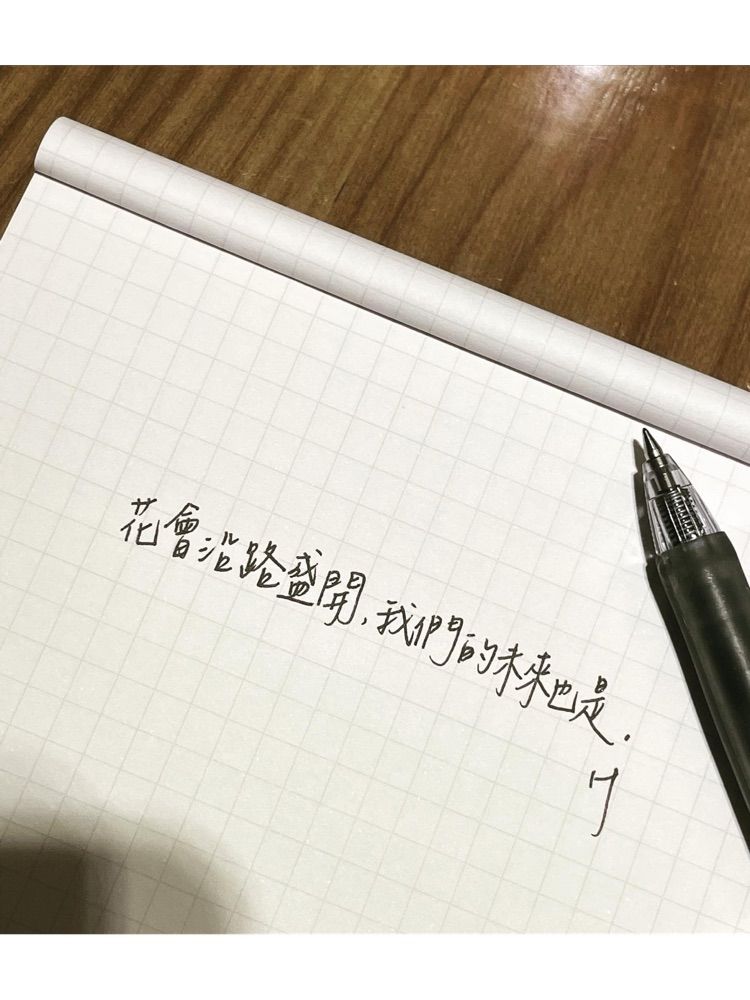 花會沿路盛開,我們的未來也是.